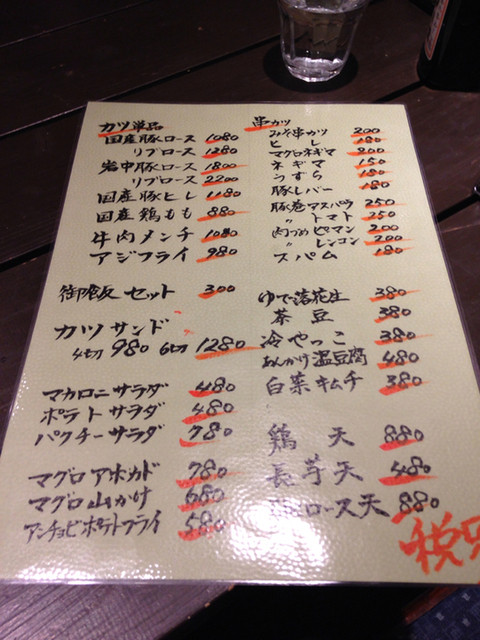 カツ単品
国産豚ロース 1080
リブロース 1280
岩中豚ロース 1800
リブロース 2200
国産豚ヒレ 1180
国産鶏もも 880
牛肉メンチ 1080
アジフライ 980
御飯セット 300
カツサンド
4切 980 6切 1280
マカロニサラダ 480
ポテトサラダ 480
パクチーサラダ 780
マグロアボカド 780
マグロ山かけ 680
アンチョビポテトフライ 580
串カツ
みそ串カツ 200
ヒレ 180
マグロネギマ 200
ネギマ 150
うずら 150
豚レバー 180
豚巻アスパラ 250
〃 トマト 250
肉づめピーマン 200
〃 レンコン 200
スパム 180
ゆで落花生 380
茶豆 380
冷やっこ 380
あんかけ温豆腐 480
白菜キムチ 380
鶏天 880
長芋天 480
ロース天 880
税